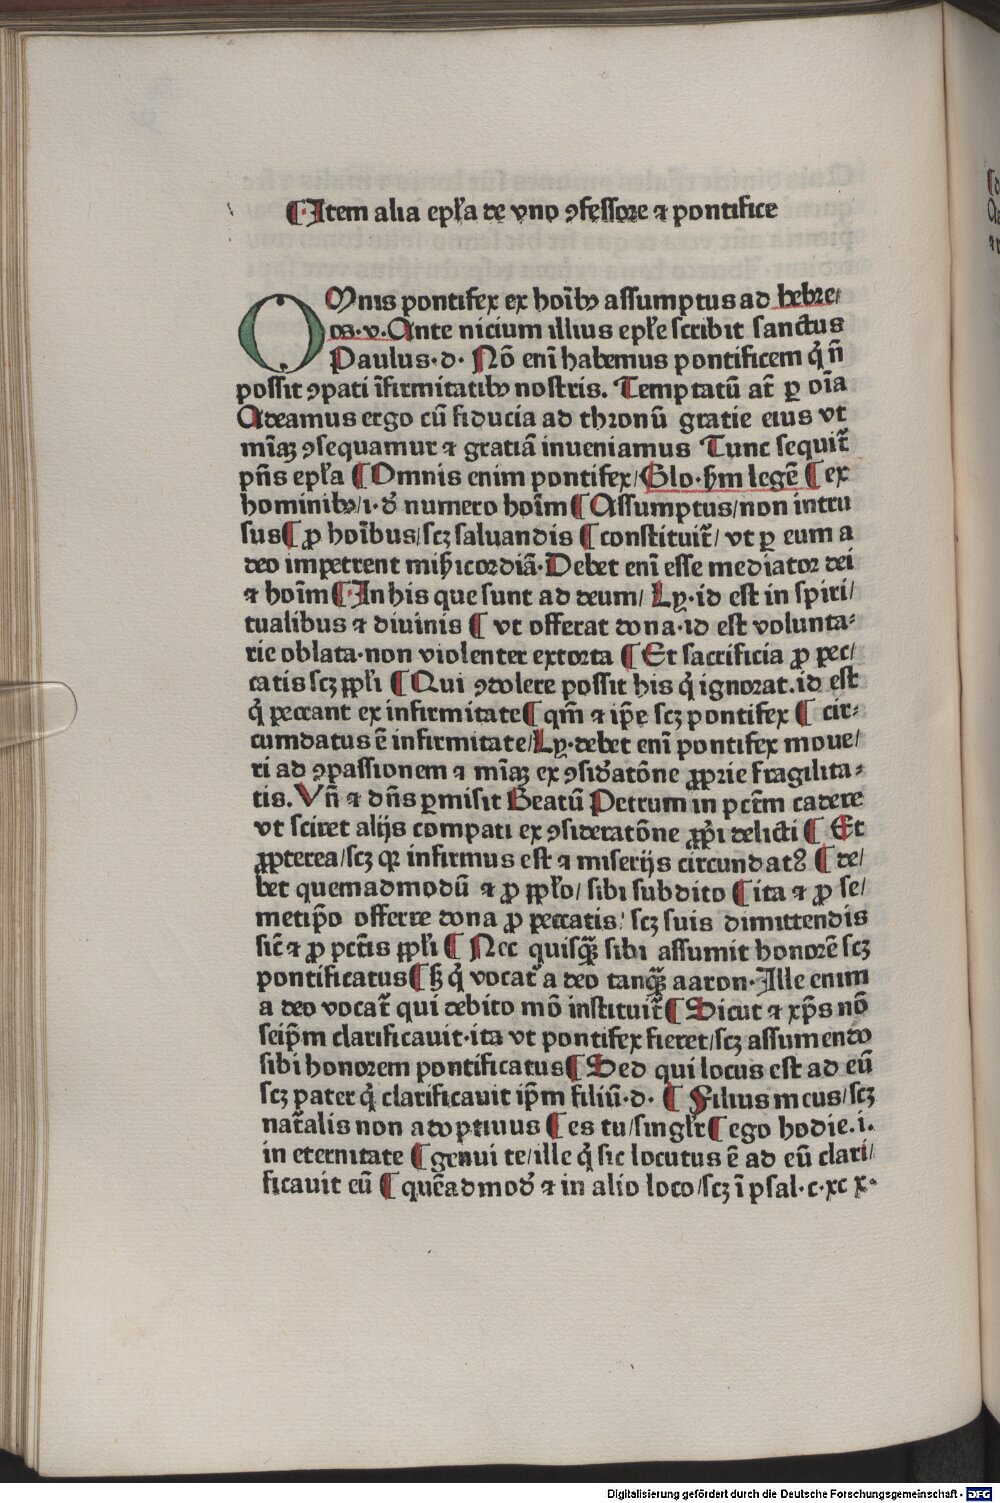 ¶ Item alia epl̃a de vno ꝯfessore ⁊ pontifice
OMnis pontifex ex hoĩbꝯ assumptus ad hebre/
os·v. Ante nicium illius epl̃e scribit sanctus
Paulus·d· Nõ enĩ habemus pontificem q̇ ñ
possit ꝯpati ĩfirmitatibꝯ nostris. Temptatũ aũt ꝑ oĩa
Adeamus ergo cũ fiducia ad thronũ gratie eius vt
mĩaꝫ ꝯsequamur ⁊ gratiã inueniamus Tunc sequit᷑
pñs epl̃a ¶ Omnis enim pontifex/Glo·ẜm legẽ ¶ ex
hominibꝯ/i·d̕ numero hoĩm ¶ Assumptus/non intru
sus ¶ ꝓ hoĩbus/scꝫ saluandis ¶ constituit᷑/ vt ꝑ eum a
deo impetrent mih̃icordiã·Debet enĩ esse mediator dei
⁊ hoĩm ¶ In his que sunt ad deum/ Ly·id est in spiri/
tualibus ⁊ diuinis ¶ vt offerat dona·id est volunta⸗
rie oblata·non violenter extorta ¶ Et sacrificia ꝓ pec/
catis scꝫ ppl̃i ¶ Qui ꝯdolere possit his q̇ ignorat.id est
q̇ peccant ex infirmitate ¶ qm̃ ⁊ ip̃e scꝫ pontifex ¶ cir⸗
cumdatus ẽ infirmitate/Ly·debet enĩ pontifex moue/
ri ad ꝯpassionem ⁊ mĩaꝫ ex ꝯsid̕atõne ꝓprie fragilita⸗
tis. Vñ ⁊ dñs ꝑmisit Beatũ Petrum in pctm̃ cadere
vt sciret alijs compati ex ꝯsideratõne ꝓpͥi delicti ¶ Et
ꝓpterea/scꝫ qꝛ infirmus est ⁊ miserijs circundatꝰ ¶ de/
bet quemadmodũ ⁊ ꝓ ppl̃o/ sibi subdito ¶ ita ⁊ ꝓ se/
metip̃o offerre dona ꝓ peccatis: scꝫ suis dimittendis
sic̃ ⁊ ꝓ pctĩs ppl̃i ¶ Nec quisq̃ꝫ sibi assumit honorẽ scꝫ
pontificatus ¶ ẜꝫ q̇ vocat᷑ a deo tanq̃ꝫ aaron·Ille enim
a deo vocat᷑ qui debito mõ instituit᷑ ¶ Sicut ⁊ xp̃s nõ
seip̃m clarificauit·ita vt pontifex fieret/scꝫ assumendo
sibi honorem pontificatus ¶ Sed qui locus est ad eũ
scꝫ pater q̇ clarificauit ip̃m filiũ·d· ¶ Filius meus/scꝫ
nat᷑alis non adoptiuus ¶ es tu/singl̃r ¶ ego hodie.i.
in eternitate ¶ genui te/ille q̇ sic locutus ẽ ad eũ clari/
ficauit eũ ¶ quẽadmod̕ ⁊ in alio loco/scꝫ ĩ psal·c·xc x·
Digitalisierung gefördert durch die Deutsche Forschungsgemeinschaft - DFG